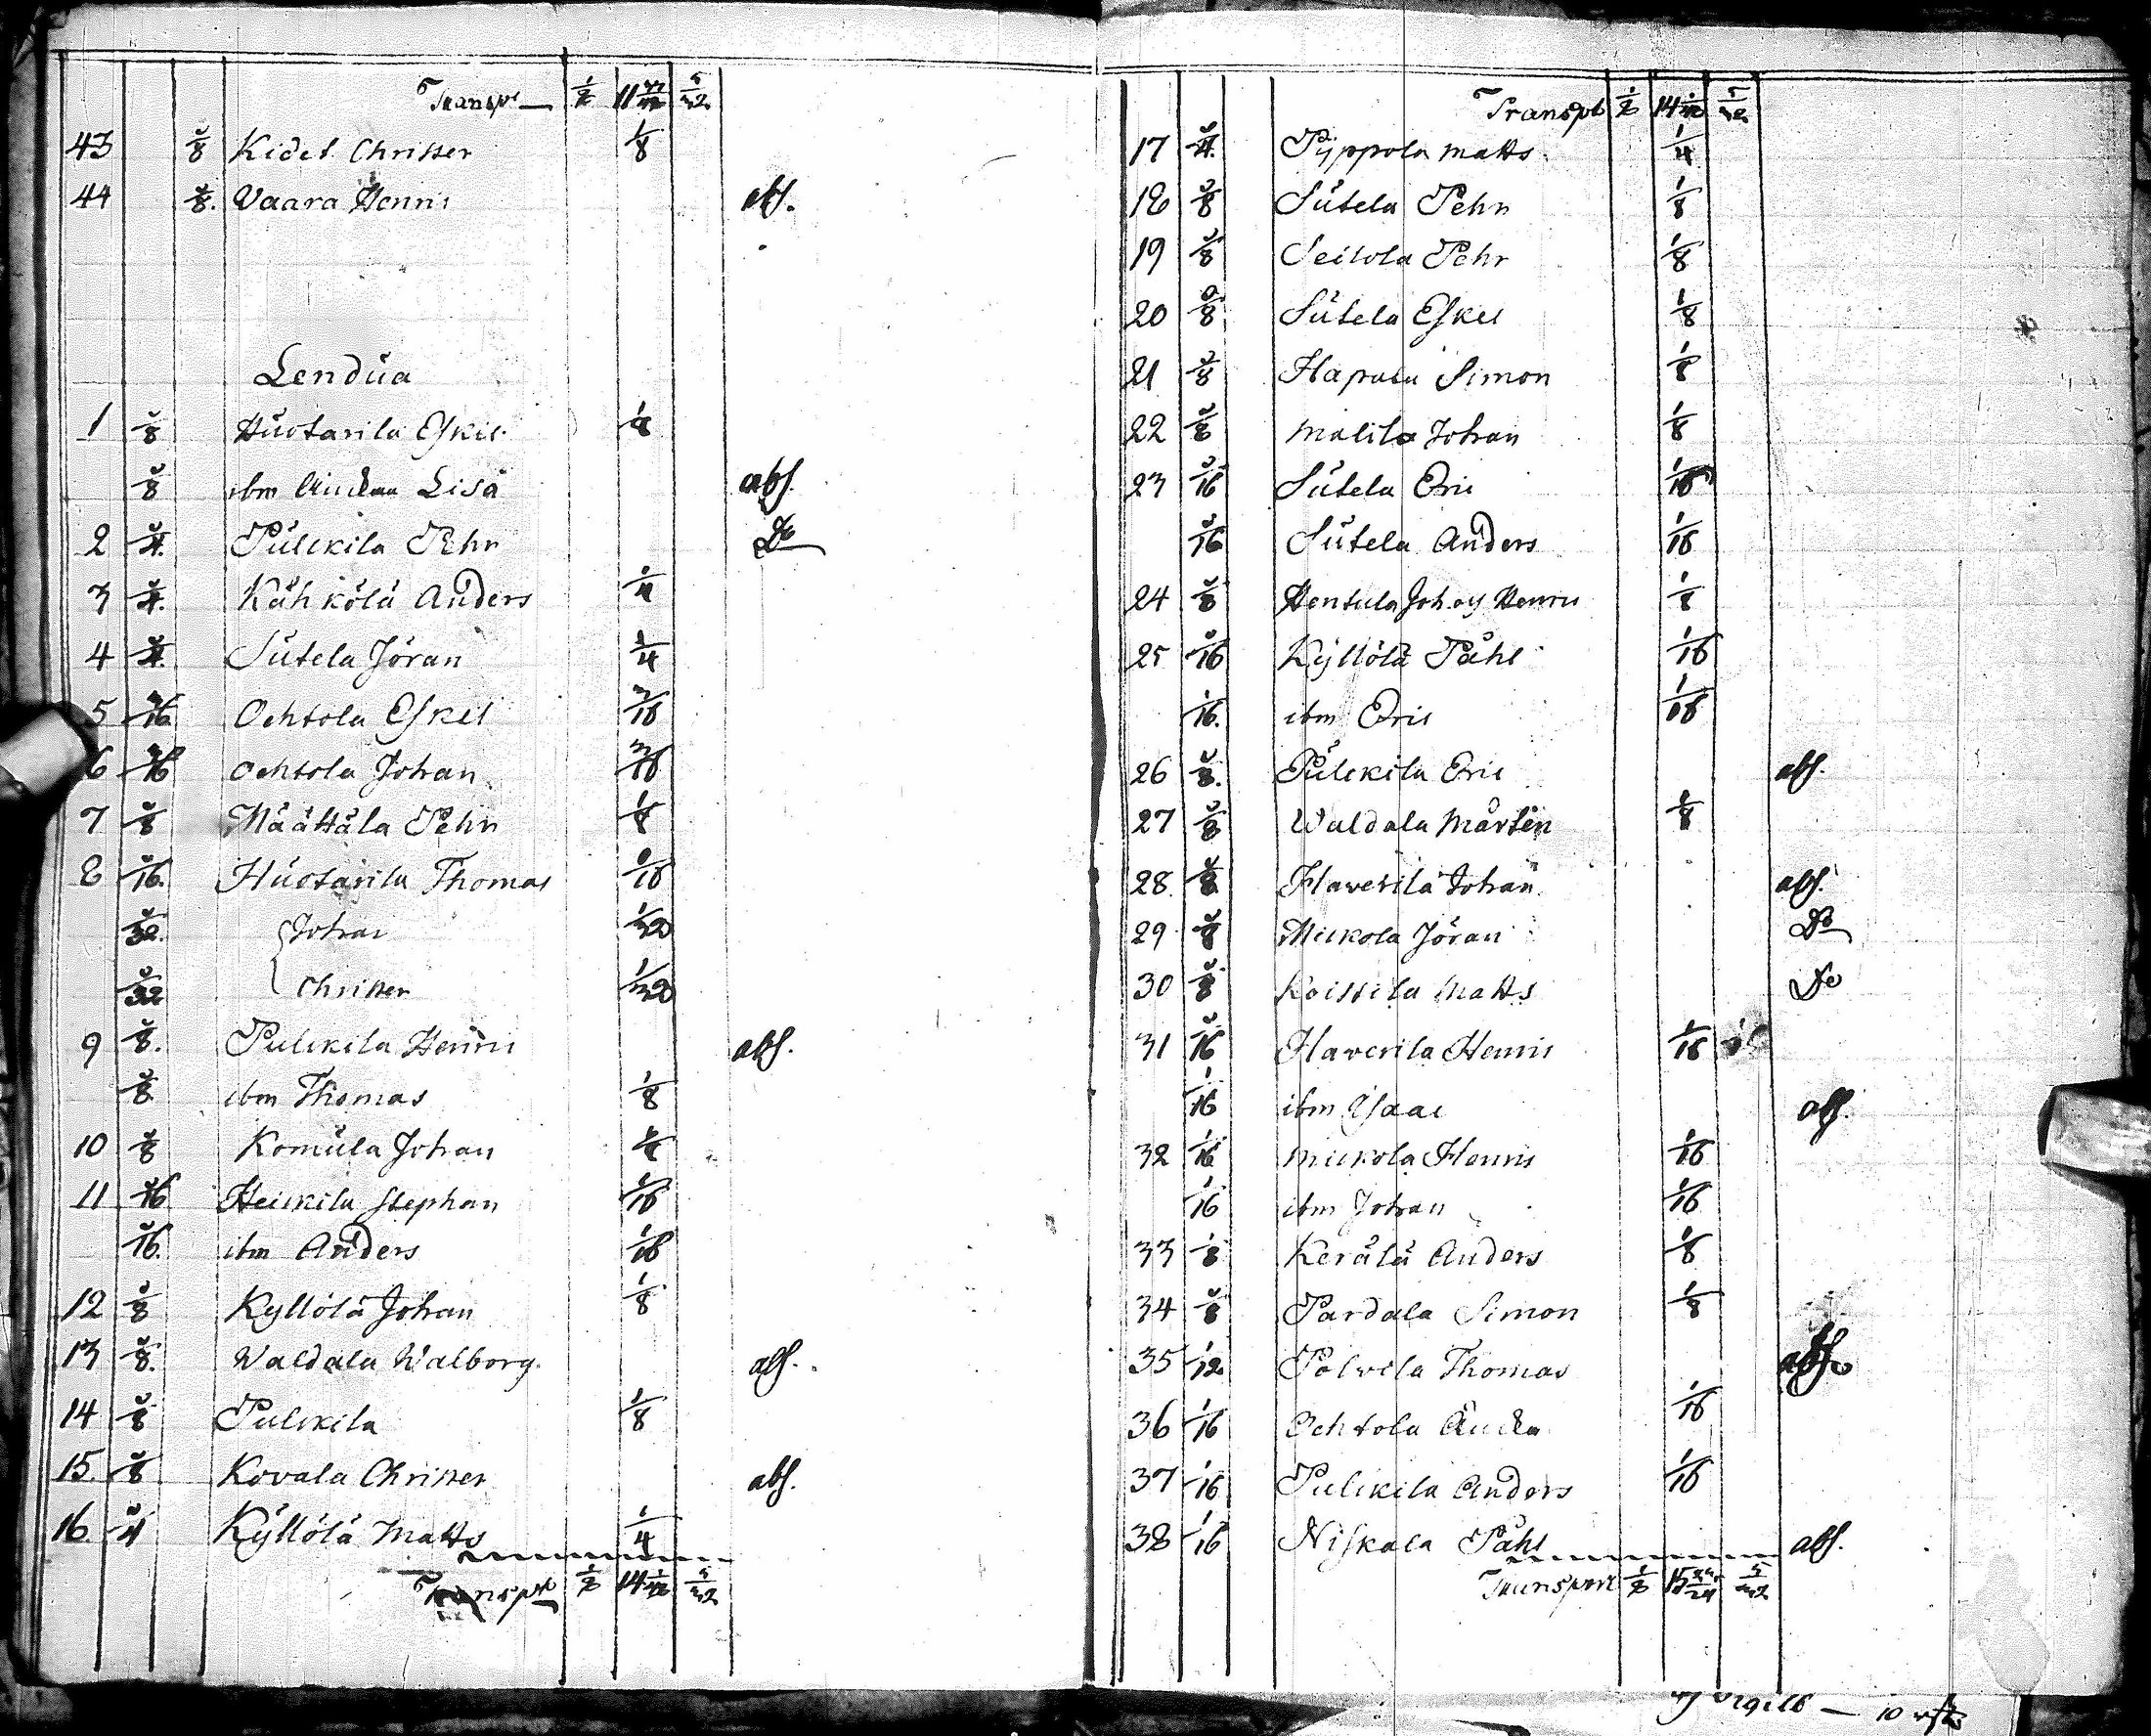 Transpt 1/8 11
43 1/8 Kidet Christer 1/8
44 1/8 Vaara Henric abs.
Lendüa
1 1/8 Huotarila Eskil 1/8
1/8 ibm Änckan Lisa abs.
2 1/4 Pulckila Pehr Do
3 1/4 Kähkölä Anders 1/4
4 1/4 Sutela Jöran 1/4
5 3/16 Ochtola Eskil 3/16
6 3/16 Ochtola Johan 3/16
7 1/8 Määttälä Pehr 1/8
8 1/16 Huotarila Thomas 1/16
1/32 Johan 1/32
1/32 Christer 1/32
9 1/8 Pulckila Henric abs.
1/8 ibm Thomas 1/8
10 1/8 Komula Johan 1/8
11 1/16 Heickila Stephan 1/16
1/16 ibm Anders 1/16
12 1/8 Kyllölä Johan 1/8
13 1/8 Waldala Walborg abs.
14 1/8 Pulckila 1/8
15 1/8 Kovala Christer abs.
16 1/4 Kyllölä Matts 1/4
Transpt 1/8 14
Transpt 1/8 14
17 1/4 Pyppola Matts 1/4
18 1/8 Sutela Pehr 1/8
19 1/8 Seitola Pehr 1/8
20 1/8 Sutela Eskil 1/8
21 1/8 Hapala Simon 1/8
22 1/8 Malila Johan 1/8
23 1/16 Sutela Eric 1/16
1/16 Sutela Anders 1/16
24 1/8 Hentula Henric 1/8
25 1/16 Kyllölä Påhl 1/16
1/16 ibm Eric 1/16
26 1/8 Pulckila Eric abs.
27 1/8 Waldala Mårten 1/8
28 1/8 Haverila Johan abs.
29 1/8 Mickola Jöran Do
30 1/8 Koistila Matts Do
31 1/16 Haverila Henric 1/16
1/16 ibm Isaac abs.
32 1/16 Mickola Henric 1/16
1/16 ibm Johan 1/16
33 1/8 Kerälä Anders 1/8
34 1/8 Pardala Simon 1/8
35 1/12 Polvila Thomas abs.
36 1/16 Ochtola Äncka 1/16
37 1/16 Pulckila Anders 1/16
38 1/16 Niskala Påhl abs.
Transport 1/8 15